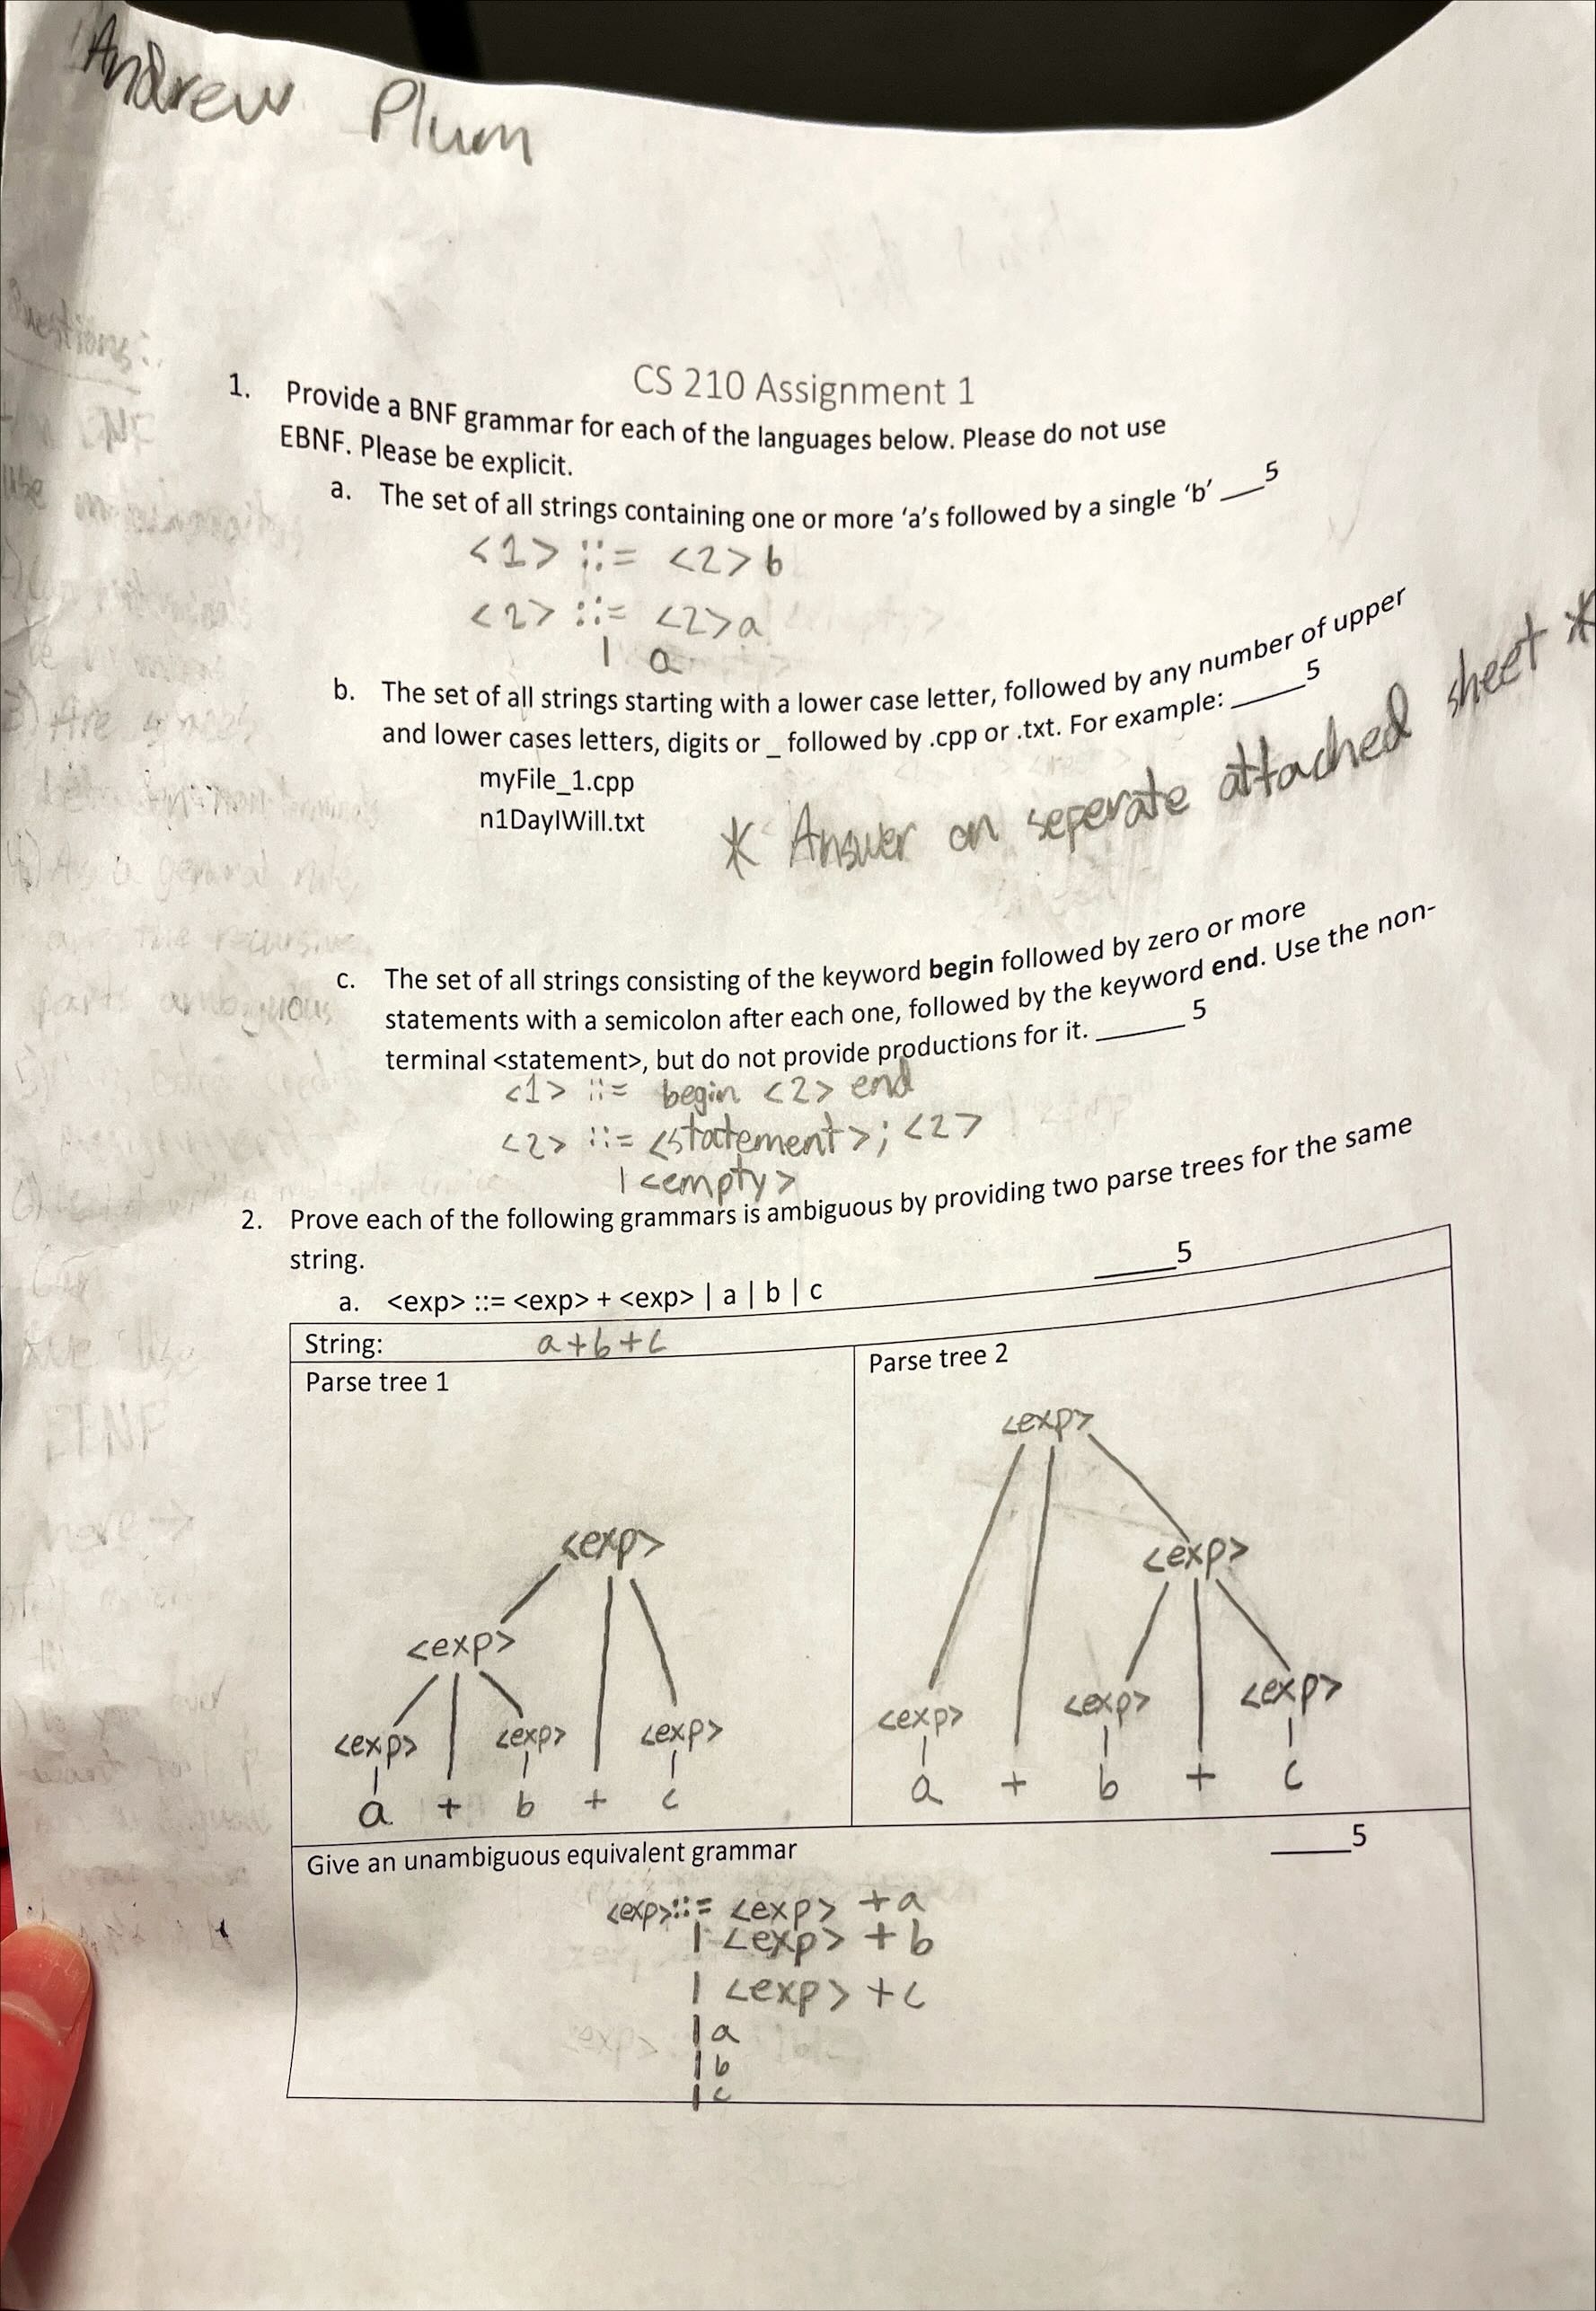 Andrew Plum
CS 210 Assignment 1
1. Provide a BNF grammar for each of the languages below. Please do not use
EBNF. Please be explicit.
a. The set of all strings containing one or more 'a's followed by a single 'b' ___5
<1> ::= <2>b
<2> ::= <2>a
| a
b. The set of all strings starting with a lower case letter, followed by any number of upper
and lower cases letters, digits or _ followed by .cpp or .txt. For example: _____5
myFile_1.cpp
n1DayIWill.txt
* Answer on seperate attached sheet *
c. The set of all strings consisting of the keyword begin followed by zero or more
statements with a semicolon after each one, followed by the keyword end. Use the non-
terminal <statement>, but do not provide productions for it. ______5
<1> ::= begin <2> end
<2> ::= <statement>; <2>
| <empty>
2. Prove each of the following grammars is ambiguous by providing two parse trees for the same
string.
a. <exp> ::= <exp> + <exp> | a | b | c _____5
String: a+b+c
Parse tree 1
<exp>
<exp>
<exp> <exp> <exp>
a + b + c
Parse tree 2
<exp>
<exp>
<exp> <exp> <exp>
a + b + c
Give an unambiguous equivalent grammar _____5
<exp>::= <exp> +a
| <exp> + b
| <exp> + c
| a
| b
| c